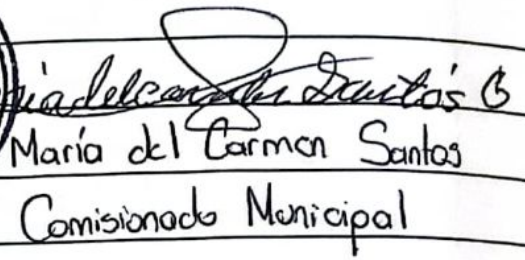 María del Carmen Santos B
María del Carmen Santos
Comisionado Municipal